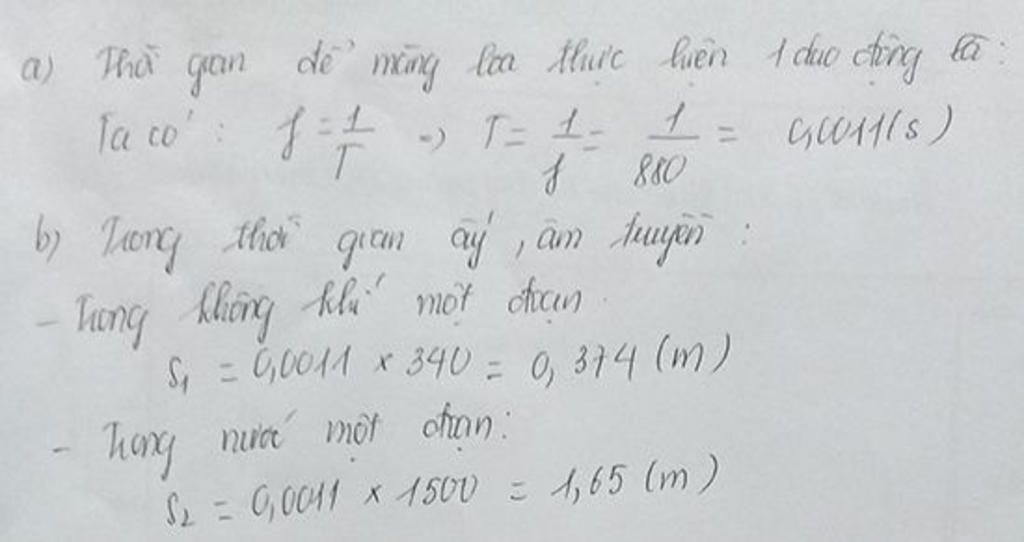 a) Thời gian để màng loa thực hiện 1 dao động là:
Ta có: f = 1/T => T = 1/f = 1/880 = 0,0011 (s)
b) Trong thời gian ấy, âm truyền:
- Trong không khí một đoạn
S₁ = 0,0011 x 340 = 0,374 (m)
- Trong nước một đoạn:
S₂ = 0,0011 x 1500 = 1,65 (m)